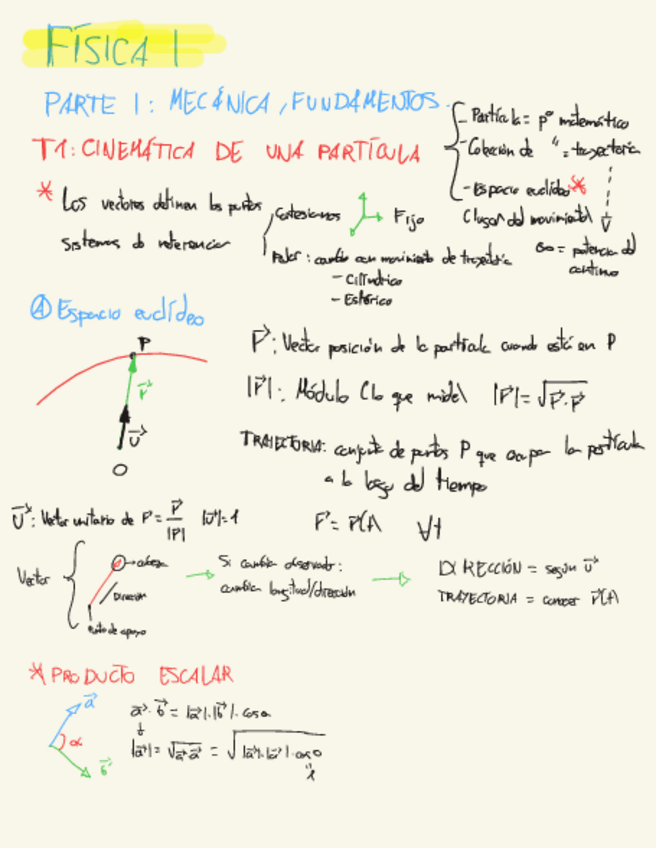 FÍSICA I
PARTE I: MECÁNICA, FUNDAMENTOS.
T1: CINEMÁTICA DE UNA PARTÍCULA
- Partícula = pº matemático
- Colección de " = trayectoria
- Espacio euclídeo *
(lugar del movimiento)
∞ = potencia del
continuo
* Los vectores definen los puntos
Sistemas de referencia
Cartesianos Fijo
Polar: cambia con movimiento de trayectoria
- Cilíndrico
- Esférico
A Espacio euclídeo
P
r⃗
u⃗
O
r⃗: Vector posición de la partícula cuando está en P
|r⃗|: Módulo (lo que mide) |r⃗| = √r⃗·r⃗
TRAYECTORIA: conjunto de puntos P que ocupa la partícula
a lo largo del tiempo
u⃗: Vector unitario de r⃗ = r⃗/|r⃗| |u⃗| = 1
r⃗ = r⃗(t) ∀t
Vector
cabeza
Dirección
Punto de apoyo
Si cambia observador:
cambia longitud/dirección
DIRECCIÓN = según u⃗
TRAYECTORIA = conocer r⃗(t)
* PRODUCTO ESCALAR
a⃗
α
b⃗
a⃗·b⃗ = |a⃗|·|b⃗|·cos α
|a⃗| = √a⃗·a⃗ = √|a⃗|·|a⃗|·cos 0
1